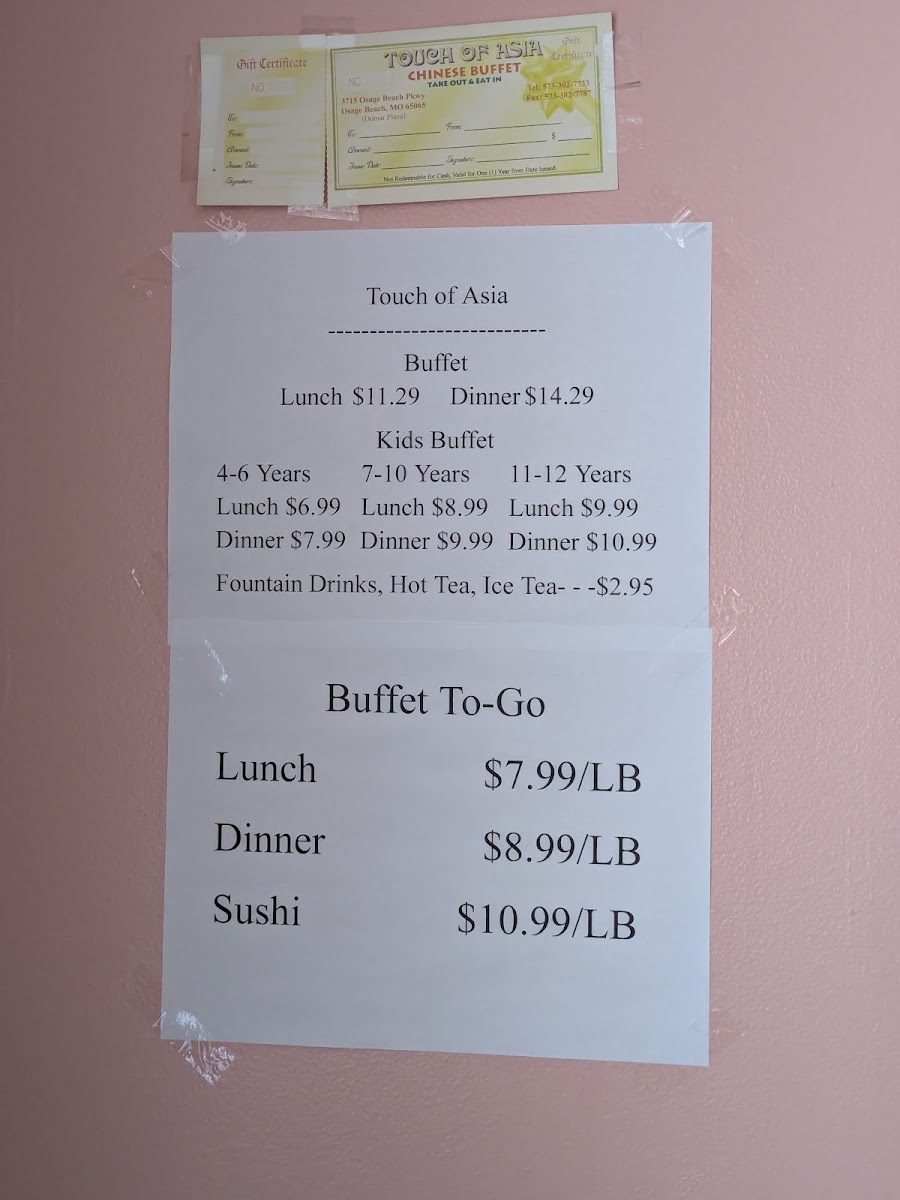 Gift Certificate
NO.
To:
From:
Amount:
Issue Date:
Signature:
TOUCH OF ASIA
CHINESE BUFFET
TAKE OUT & EAT IN
Gift
Certificate
NO
3715 Osage Beach Pkwy
Osage Beach, MO 65065
(Domar Plaza)
Tel: 573-302-7733
Fax: 573-302-7787
To: From:
Amount: $
Issue Date: Signature:
Not Redeemable for Cash, Valid for One (1) Year from Date Issued.
Touch of Asia
--------------------------
Buffet
Lunch $11.29 Dinner $14.29
Kids Buffet
4-6 Years 7-10 Years 11-12 Years
Lunch $6.99 Lunch $8.99 Lunch $9.99
Dinner $7.99 Dinner $9.99 Dinner $10.99
Fountain Drinks, Hot Tea, Ice Tea- - -$2.95
Buffet To-Go
Lunch $7.99/LB
Dinner $8.99/LB
Sushi $10.99/LB